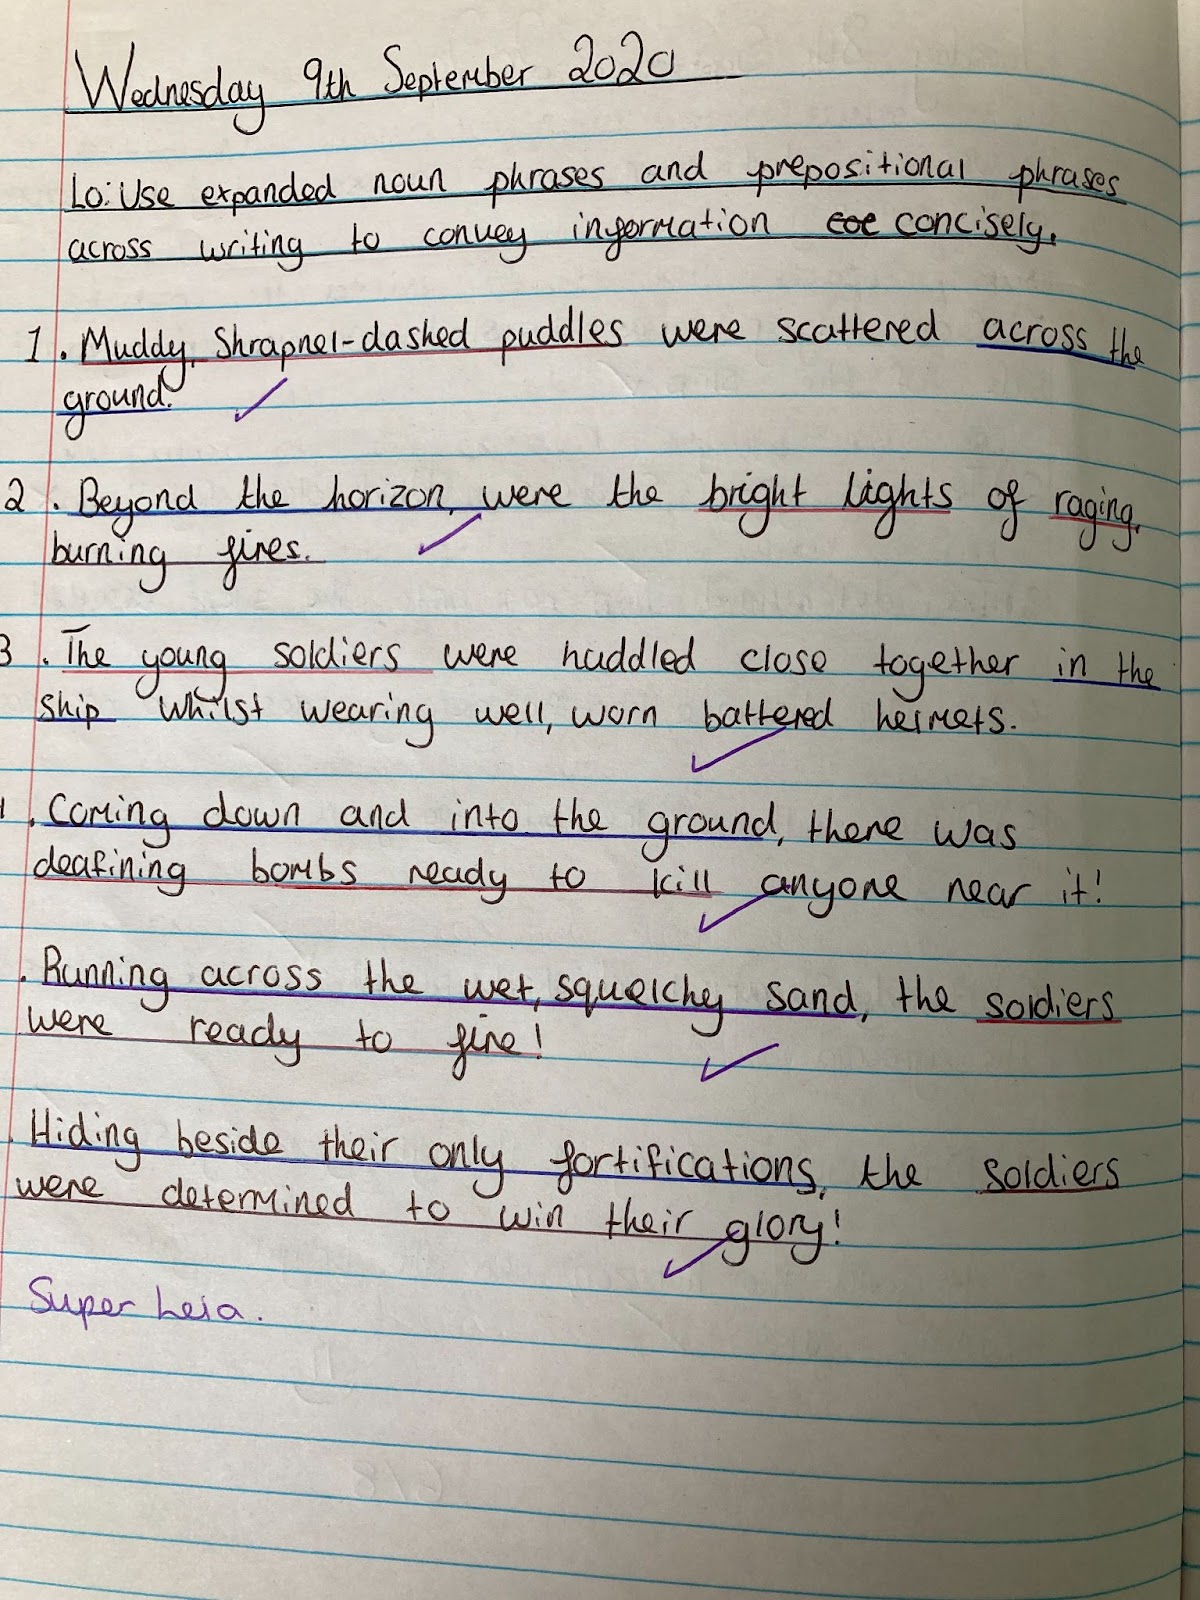 Wednesday 9th September 2020
Lo: Use expanded noun phrases and prepositional phrases
across writing to convey information coc concisely.
1. Muddy, Shrapnel-dashed puddles were scattered across the
ground.
2. Beyond the horizon, were the bright lights of raging,
burning fires.
3. The young soldiers were huddled close together in the
ship whilst wearing well, worn battered helmets.
. Coming down and into the ground, there was
deafining bombs ready to kill anyone near it!
. Running across the wet, squelchy sand, the soldiers
were ready to fire!
. Hiding beside their only fortifications, the soldiers
were determined to win their glory!
Super Leia.